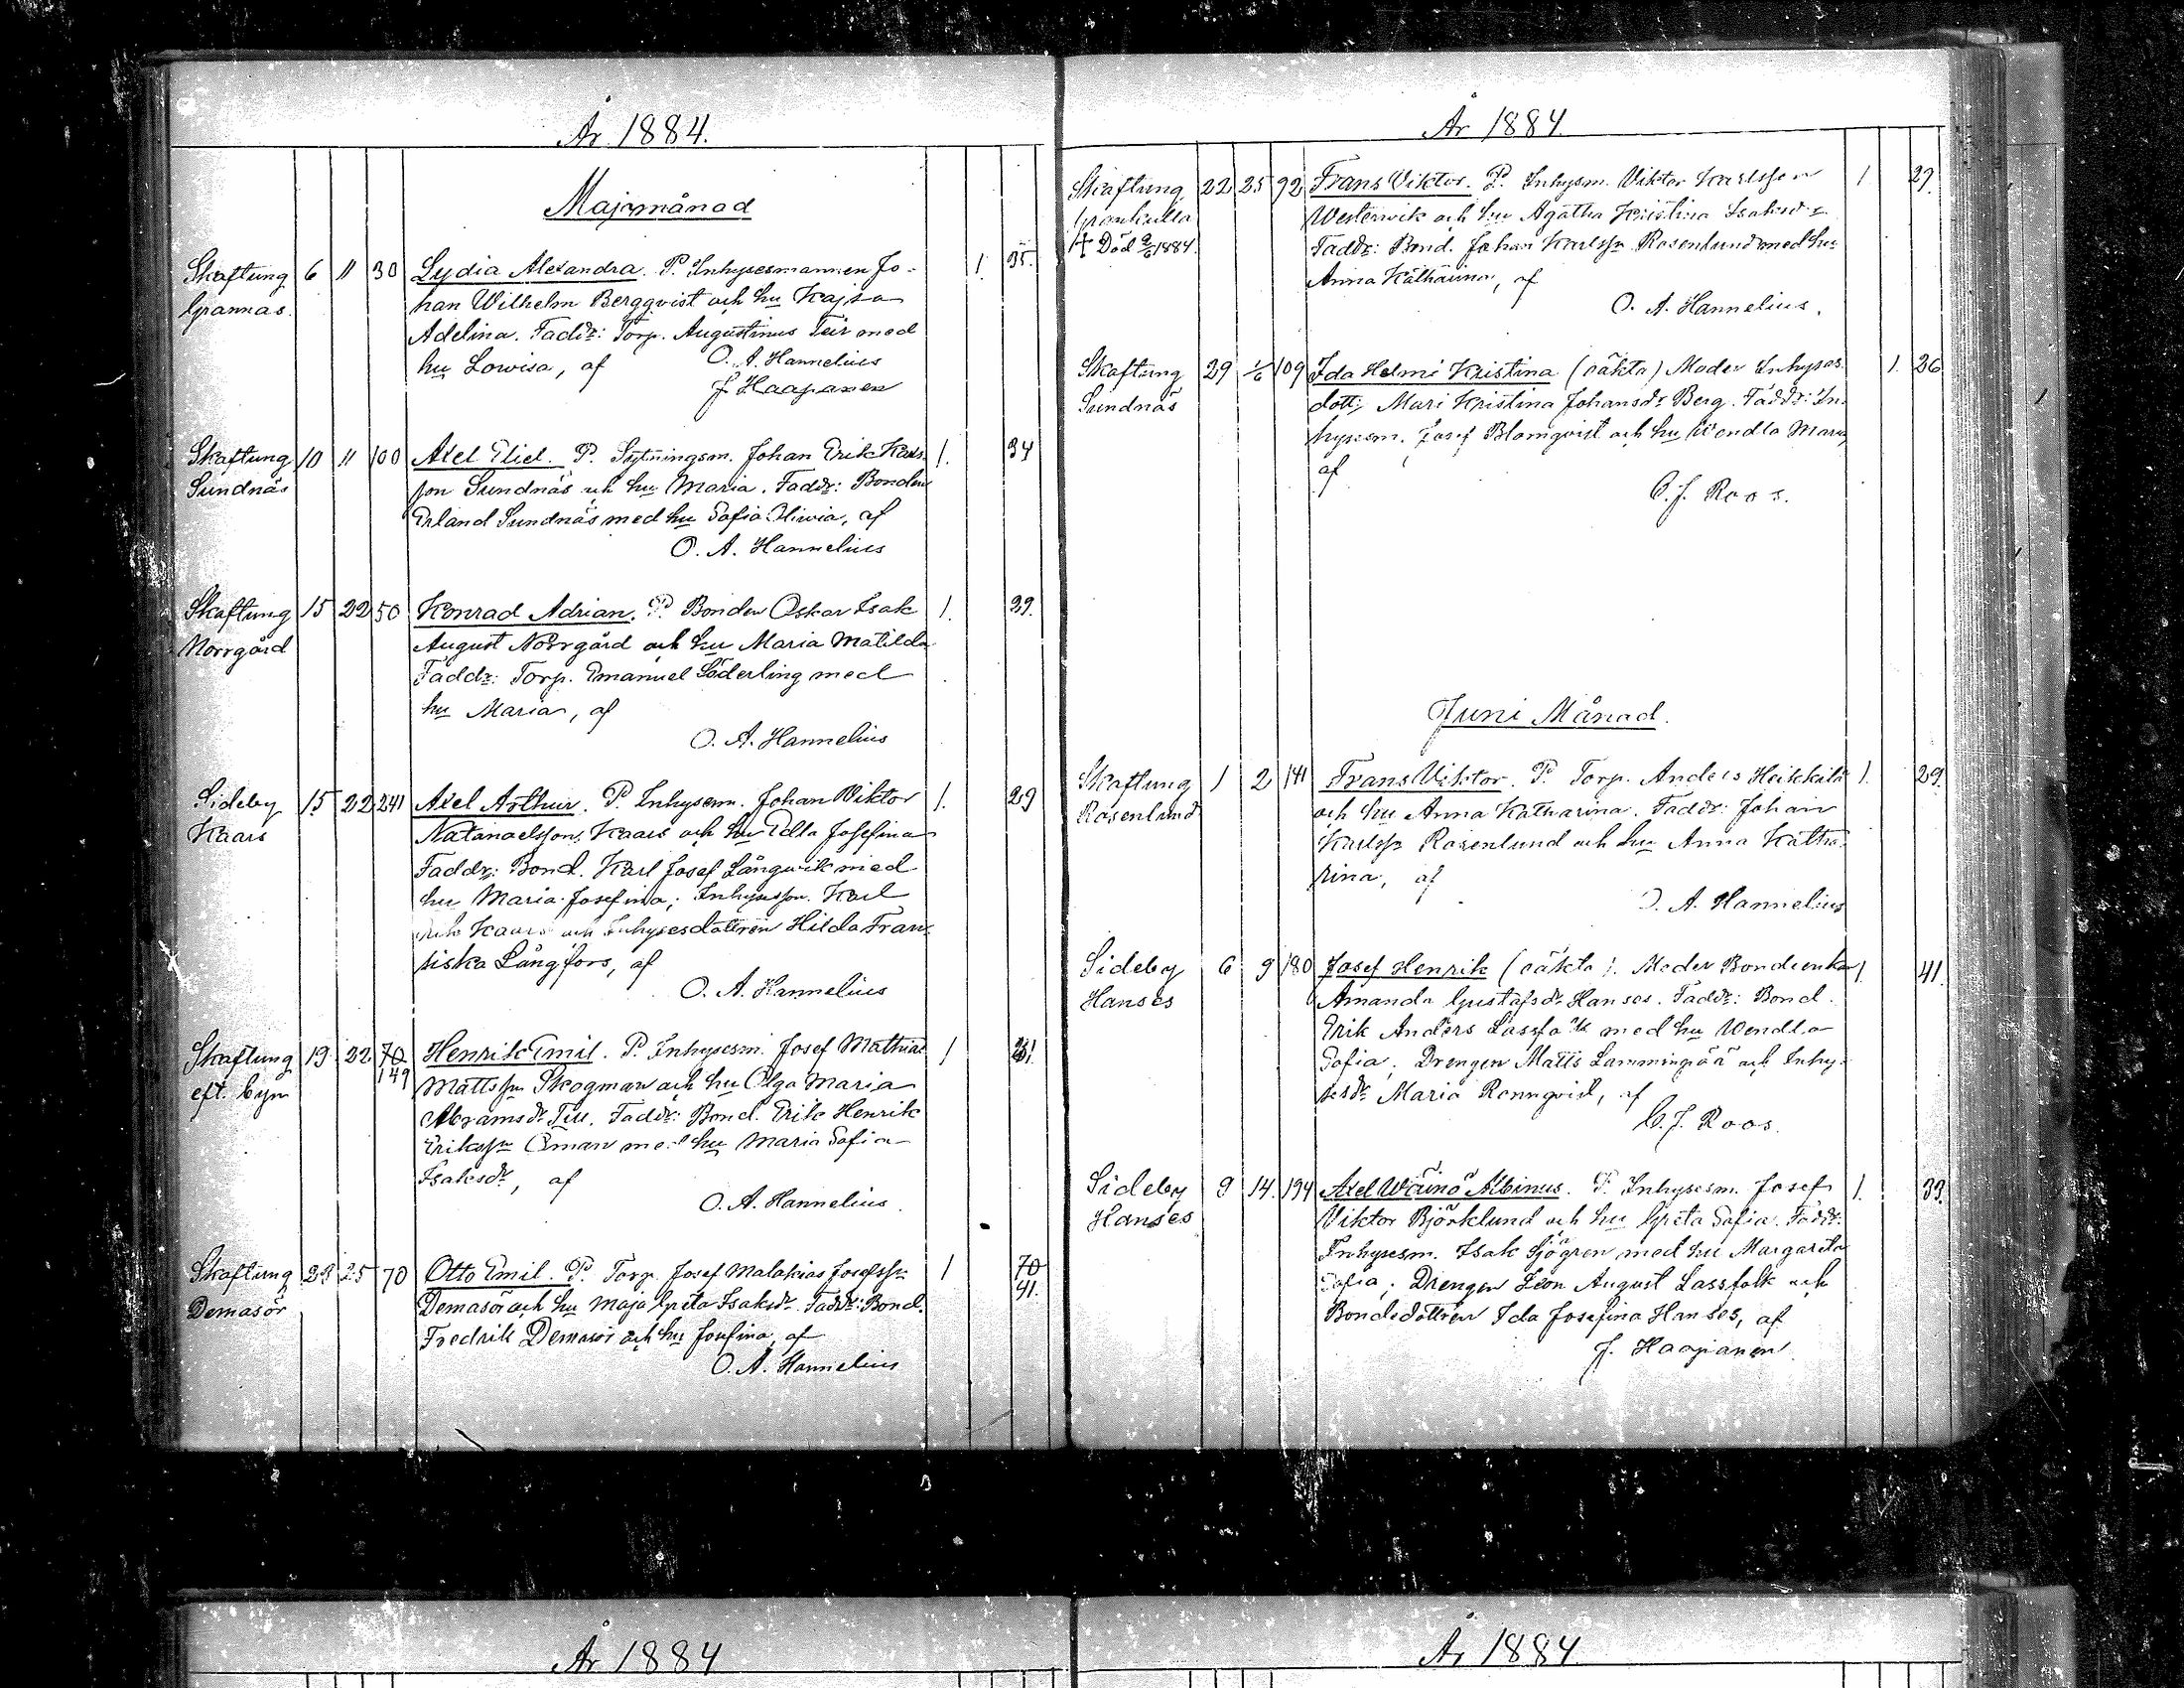 År 1884.
Majmånad
Skaftung 6 11 30 Lydia Alexandra. P. Inhysesmannen Jo- 1. 35.
Grannas. han Wilhelm Bergqvist och hu Kajsa
Adelina. Faddr: Torp. Augustinus Teir med
hu Lowisa, af O. A. Hannelius
J Haapanen
Skaftung 10 11 100 Axel Eliel. P. Sytningsm. Johan Erik Karls 1. 34
Sundnäs son Sundnäs och hu Maria. Faddr: Bonden
Erland Sundnäs med hu Sofia Oliwia, af
O. A. Hannelius
Skaftung 15 22 50 Konrad Adrian. P. Bonden Oskar Isak 1. 29.
Norrgård August Norrgård och hu Maria Matilda
Faddr: Torp. Emanuel Söderling med
hu Maria, af
O. A. Hannelius
Sideby 15 22 241 Axel Arthur. P. Inhysem. Johan Viktor 1. 29
Kaars Natanaelsson Kaars och hu Edla Josefina
Faddr: Bond. Karl Josef Långwik med
hu Maria Josefina; Inhysesson. Karl
Kaars och Inhysesdottren Hilda Fran
siska Långfors, af
O. A. Hannelius
Skaftung 19 22 70 Henrik Emil. P. Inhysesm. Josef Mathias 1 31.
eft. byn 149 Mattssn Skogman och hu Olga Maria
Abramsdr Faddr: Bond. Erik Henrik
Erikssn Öman med hu Maria Sofia
Isaksdr, af
O. A. Hannelius
Skaftung 23 25 70 Otto Emil. P. Torp. Josef Malakias Josefssn 1 70
Demasör Demasör och hu Maja Greta Isaksdr. Faddr: Bond. 41.
Fredrik Demasör och hu Josefina, af
O. A. Hannelius
År 1884
Skaftung 22 25 92 Frans Viktor. P. Inhysm. Viktor Karlsson 1 27.
Grankulla Westerwik och hu Agatha Kristina Isaksdr
† Död 9/6 1884. Faddr: Bond. Johan Karlssn Rosenlund med hu
Anna Katharina, af
O. A. Hannelius.
Skaftung 29 1/6 109 Ida Helmi Kristina (oäkta) Moder Inhyses 1. 26
Sundnäs dott. Mari Kristina Johansdr Berg. Faddr: In-
hysesm. Josef Blomqvist och hu Wendla Maria
af
C. J. Roos.
Juni Månad.
Skaftung 1 2 141 Frans Viktor. P. Torp. Anders Heikkilä 1. 29.
Rosenlund och hu Anna Katharina. Faddr: Johan
Karlssn Rosenlund och hu Anna Katha-
rina, af
O. A. Hannelius
Sideby 6 9 180 Josef Henrik (oäkta). Moder Bondeenkan 1. 41.
Hanses Amanda Gustafsdr Hanses. Faddr: Bond.
Erik Anders Lassfolk med hu Wendla
Sofia; Drengen Matts Lammingpää och Inhy-
sesdr Maria Rönnqvist, af
C. J. Roos.
Sideby 9 14. 194 Axel Wäinö Albinus. P. Inhysesm. Josef 1. 39.
Hanses Viktor Björklund och hu Greta Sofia. Faddr:
Inhysesm. Isak Sjögren med hu Margareta
Sofia; Drengen Leon August Lassfolk och
Bondedottren Ida Josefina Hanses, af
J. Haapanen
År 1884
År 1884